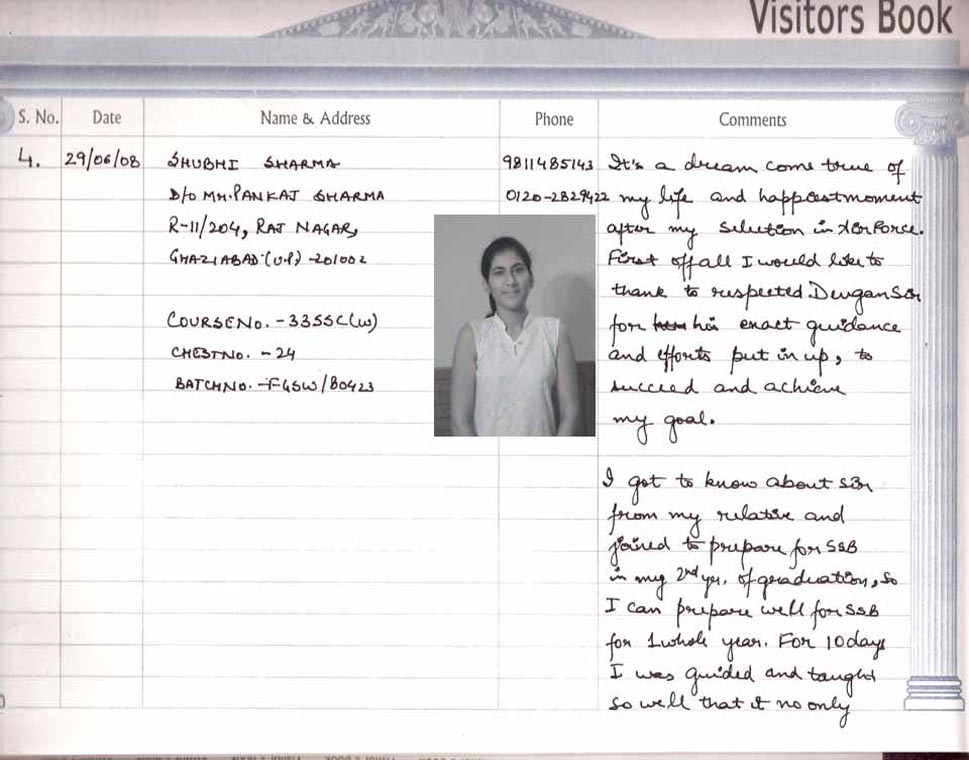 Visitors Book
S. No. Date Name & Address Phone Comments
4. 29/06/08 SHUBHI SHARMA 9811485143 It's a dream come true of
D/O MR. PANKAJ SHARMA 0120-2829422 my life and happiest moment
R-11/204, RAJ NAGAR, after my selection in Air Force.
GHAZIABAD (U.P) -201002 First off all I would like to
thank to respected Dewgan Sir
COURSE NO. - 33SSC(W) for his exact guidance
CHEST NO. - 24 and efforts put in up, to
BATCH NO. - F4SW/80423 succeed and achieve
my goal.
I got to know about sir
from my relative and
joined to prepare for SSB
in my 2nd yr. of graduation, so
I can prepare well for SSB
for 1 whole year. For 10 days
I was guided and taught
so well that it no only